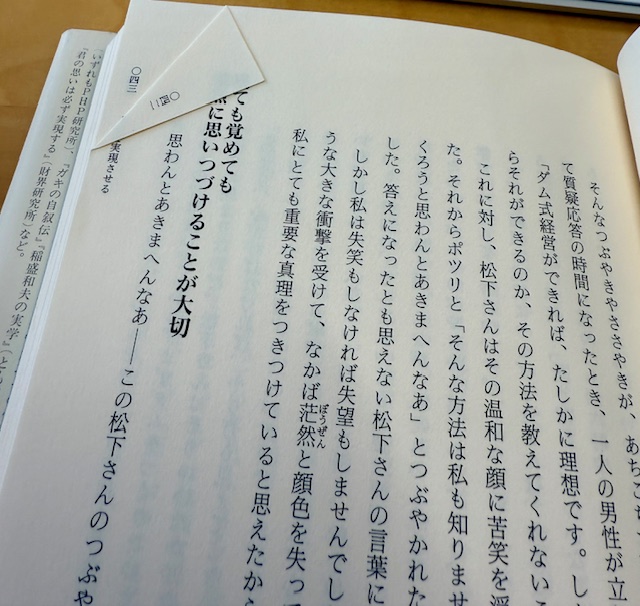 そんなつぶやきやささやきが、あちこち
て質疑応答の時間になったとき、一人の男性が立
「ダム式経営ができれば、たしかに理想です。し
らそれができるのか、その方法を教えてくれないこ
これに対し、松下さんはその温和な顔に苦笑を浮
た。それからポツリと「そんな方法は私も知りませ
くろうと思わんとあきまへんなあ」とつぶやかれた
した。答えになったとも思えない松下さんの言葉に
しかし私は失笑もしなければ失望もしませんでし
うな大きな衝撃を受けて、なかば茫然と顔色を失っ
ぼうぜん
私にとても重要な真理をつきつけていると思えたから
ても覚めても
に思いつづけることが大切
思わんとあきまへんなあ――この松下さんのつぶや
実現させる
〇四三
〇四二
(いずれもPHP研究所)、『ガキの自叙伝』『稲盛和夫の実学』(とも
『君の思いは必ず実現する』(財界研究所)など。